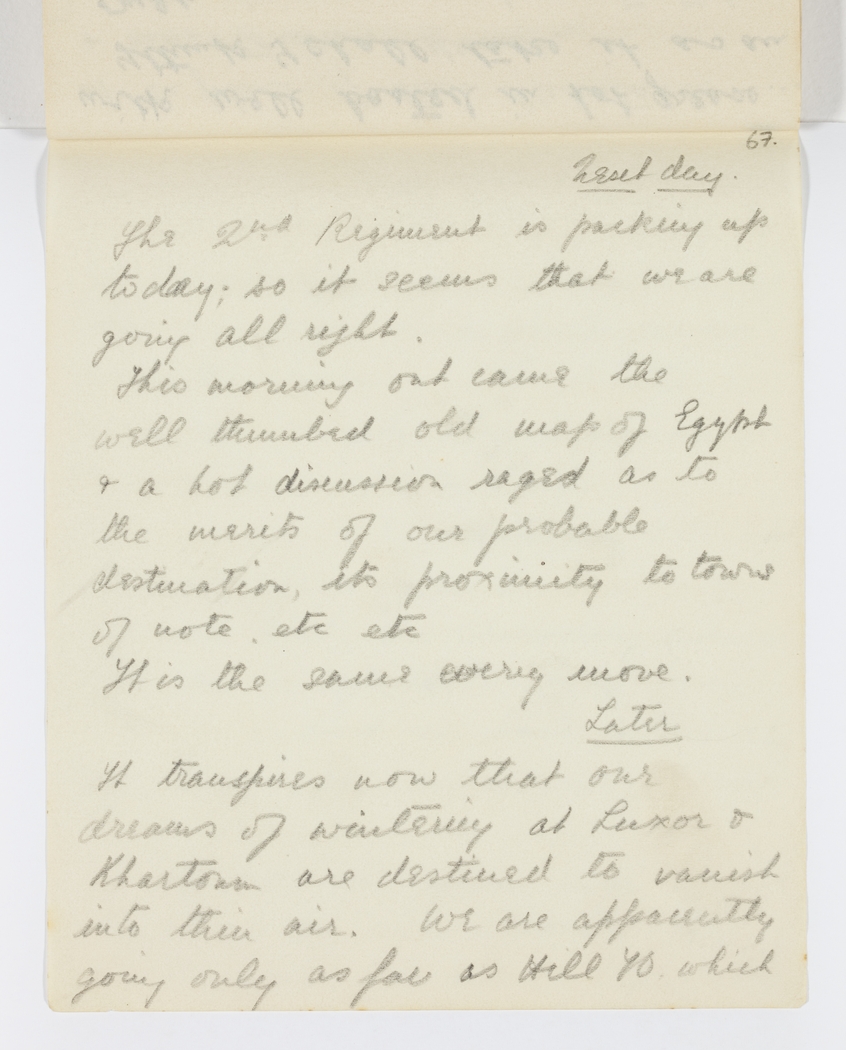 67.
Next day.
The 2nd Regiment is packing up
today; so it seems that we are
going all right.
This morning out came the
well thumbed old map of Egypt
& a hot discussion raged as to
the merits of our probable
destination, its proximity to towns
of note. etc etc
It is the same every move.
Later
It transpires now that our
dreams of wintering at Luxor &
Khartoum are destined to vanish
into thin air. We are apparently
going only as far as Hill 70. which